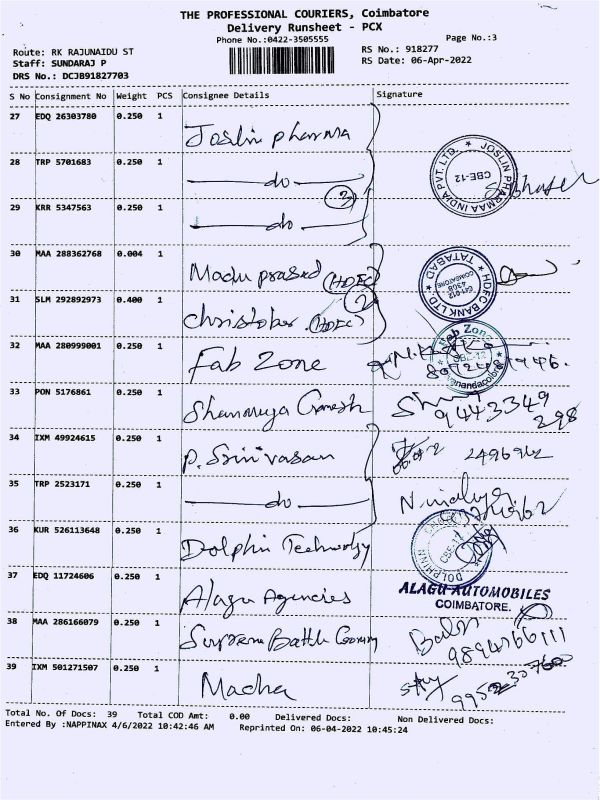 THE PROFESSIONAL COURIERS, Coimbatore
Delivery Runsheet - PCX
Phone No.:0422-3505555
Page No.:3
Route: RK RAJUNAIDU ST
Staff: SUNDARAJ P
DRS No.: DCJB91827703
RS No.: 918277
RS Date: 06-Apr-2022
S No Consignment No Weight PCS Consignee Details Signature
27 EDQ 26303780 0.250 1 Joslin pharma
28 TRP 5701683 0.250 1 do
JOSLIN PHARMAA INDIA PVT. LTD. CBE-12
3
29 KRR 5347563 0.250 1 do
30 MAA 288362768 0.004 1 Madu prasad (HDFC)
HDFC BANK LTD TATABAD
2
31 SLM 292892973 0.400 1 Christober (HDFC)
32 MAA 280999001 0.250 1 Fab Zone
Fab Zone CBE-12
33 PON 5176861 0.250 1 Shanmuga Ganesh 9443349
298
34 IXM 49924615 0.250 1 P. Srinivasan 2496962
35 TRP 2523171 0.250 1 do
36 KUR 526113648 0.250 1 Dolphin Technology
DOLPHINN CBE-12
37 EDQ 11724606 0.250 1 Alagu Agencies
ALAGU AUTOMOBILES
COIMBATORE.
38 MAA 286166079 0.250 1 Supreme Battle
9894766111
39 IXM 501271507 0.250 1 Madha
Total No. Of Docs: 39 Total COD Amt: 0.00 Delivered Docs: Non Delivered Docs:
Entered By :NAPPINAX 4/6/2022 10:42:46 AM Reprinted On: 06-04-2022 10:45:24